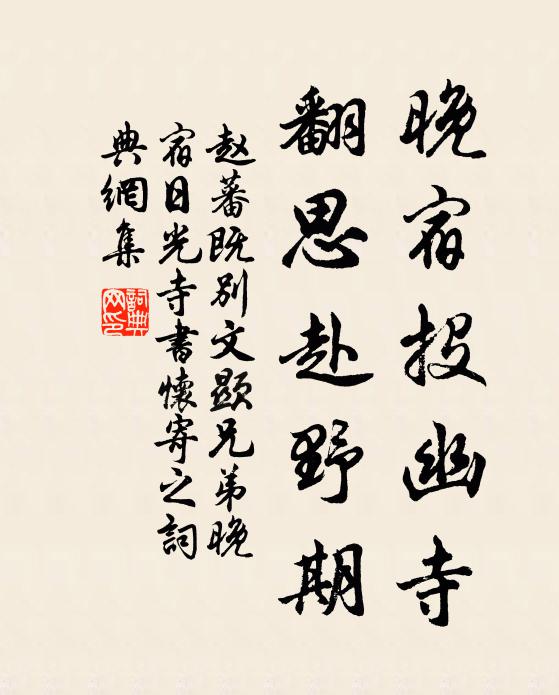 晚宿投幽寺
翻思赴野期
赵蕃既别文显兄弟晚
宿日光寺書懷寄之詞
典網集
詞典网印